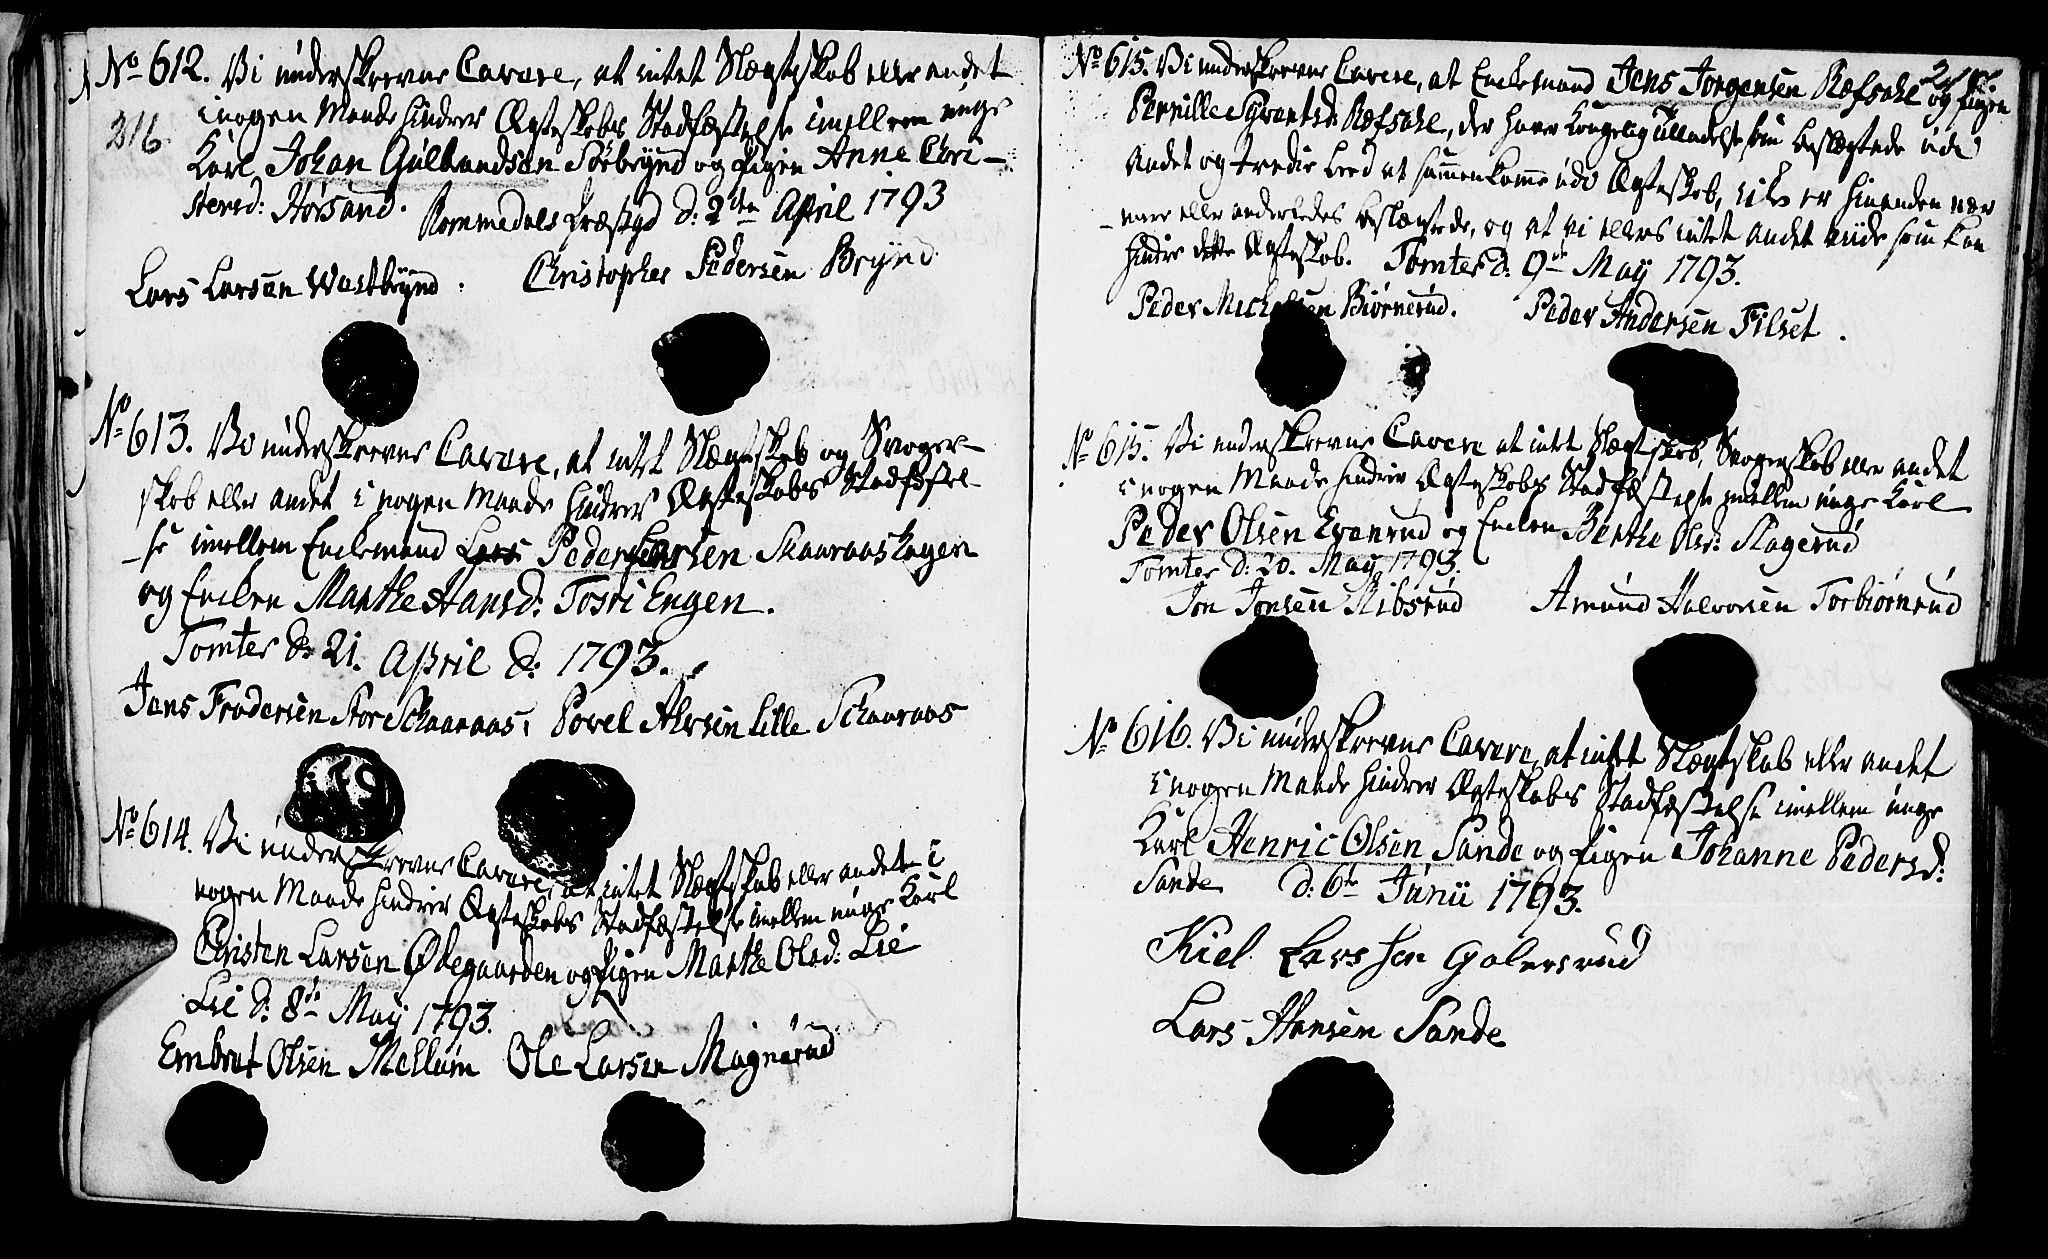 No 612. Vi underskrevne Cavere, at intet Slægtskab eller andet
316
i nogen Maade hindrer Ægteskabs Stadfæstelse imellem unge
Karl Johan Gulbrandsen Sørbrÿnd og Pigen Anne Chri-
stensd: Hørsand. Rommedals Præstgd d: 2den April 1793
Lars Larsen Wastbrÿnd. Christopher Pedersen Brÿnd.
No 613. Vi underskrevne Cavere, at intet Slægtskab og Svoger-
skab eller andet i nogen Maade hindrer Ægteskabs Stadfæstel-
se imellem Enkemand Pedersen Skaaraashagen
og Enken Marthe Hansd: Tosti Engen.
Tomter d: 21. April d: 1793.
Jens Fredersen Stor Schaaraas, Povel Alvsen Lille Schaaraas
No 614. Vi underskrevne Cavere, at intet Slægtskab eller andet i
nogen Maade hindrer Ægteskabs Stadfæstelse imellem unge Karl
Christen Larsen Ødegaarden og Pigen Marthe Olsd: Lie
Lie d: 8de Maÿ 1793.
Embret Olsen Mellum Ole Larsen Magnerud
No 615. Vi underskrevne Cavere, at Enkemand Jens Jorgensen Ræfsahl og Pigen
Pernille Sÿvertsd: Ræfsahl, der haver Kongelig Tilladelse som beslægtede udi
Andet og tredie Leed at sammenkomme udi Ægteskab, ikke er hinanden nær
-mere eller anderledes beslægtede, og at vi ellers intet andet viide som kan
hindre dette Ægteskab. Tomter d: 9de Maÿ 1793.
Peder Michelsen Biørnerud. Peder Andersen Filset.
No 615. Vi underskrevne Cavere at intet Slægtskab, Svogerskab eller andet
i nogen Maade hindrer Ægteskabs Stadfæstelse imellem unge Karl
Peder Olsen Evenrud og Enken Berthe Olsd: Slagerud
Tomter d: 20. Maÿ 1793.
Jon Jonsen Ribsrud Amund Halvorsen Torbiørnrud
No 616. Vi underskrevne Cavere, at intet Slægtskab eller andet
i nogen Maade hindrer Ægteskabs Stadfæstelse imellem unge
Karl Henric Olsen Sande og Pigen Johanne Pedersd:
Sande d: 6te Junii 1793.
Kiel Larssen Galersrud
Lars Hansen Sande